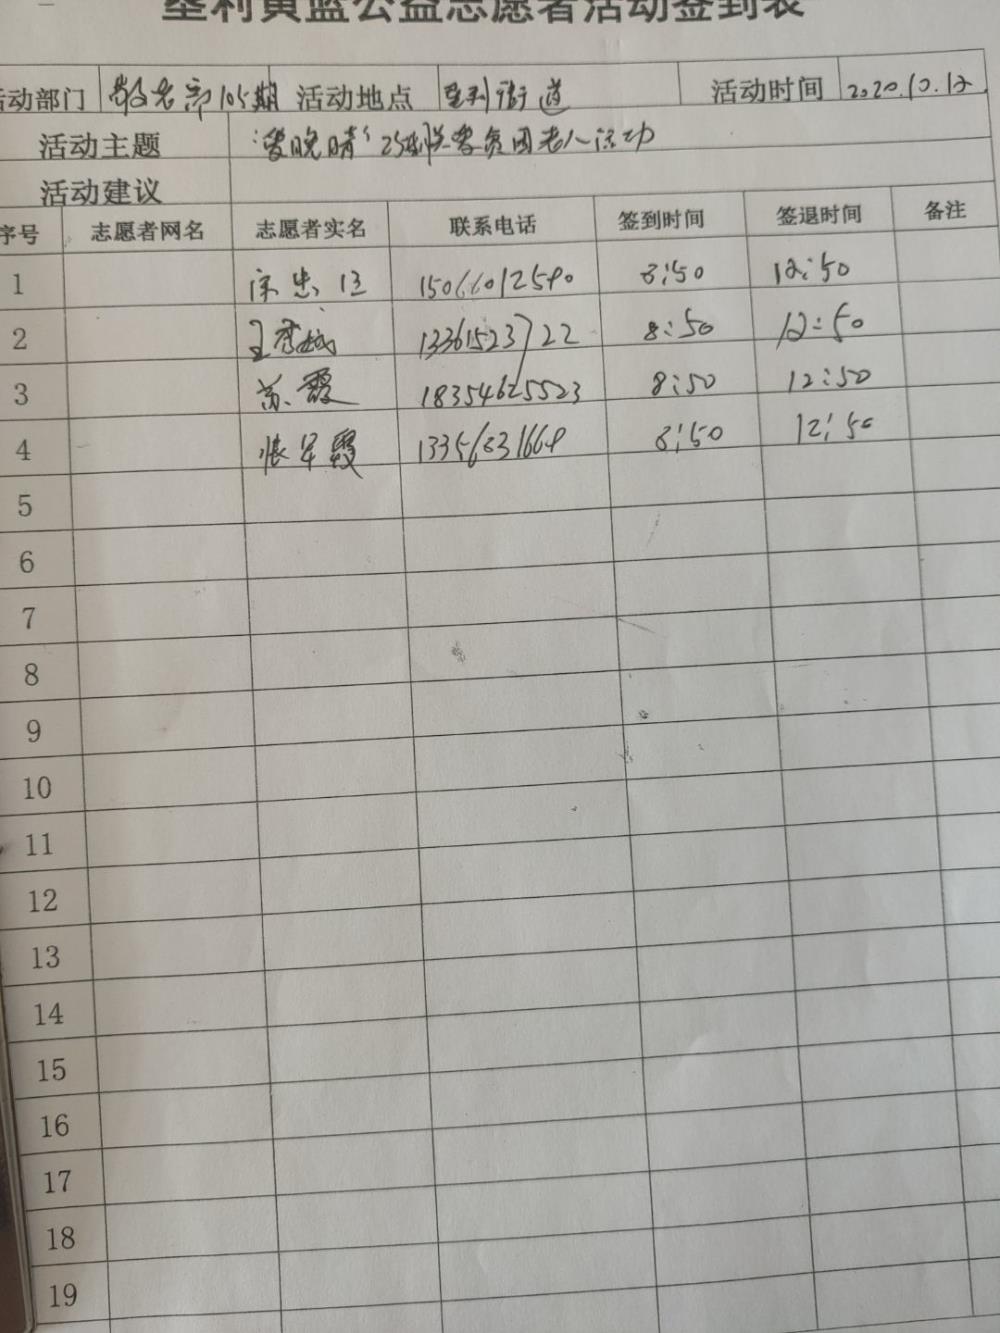 垦利黄蓝公益志愿者活动签到表
活动部门 敬老部105期 活动地点 垦利街道 活动时间 2020.12.12
活动主题 关爱贫困老人活动
活动建议
序号 志愿者网名 志愿者实名 联系电话 签到时间 签退时间 备注
1 15066012590 8:50 12:50
2 13361523722 8:50 12:50
3 苏霞 18354625523 8:50 12:50
4 张军霞 8:50 12:50
5
6
7
8
9
10
11
12
13
14
15
16
17
18
19